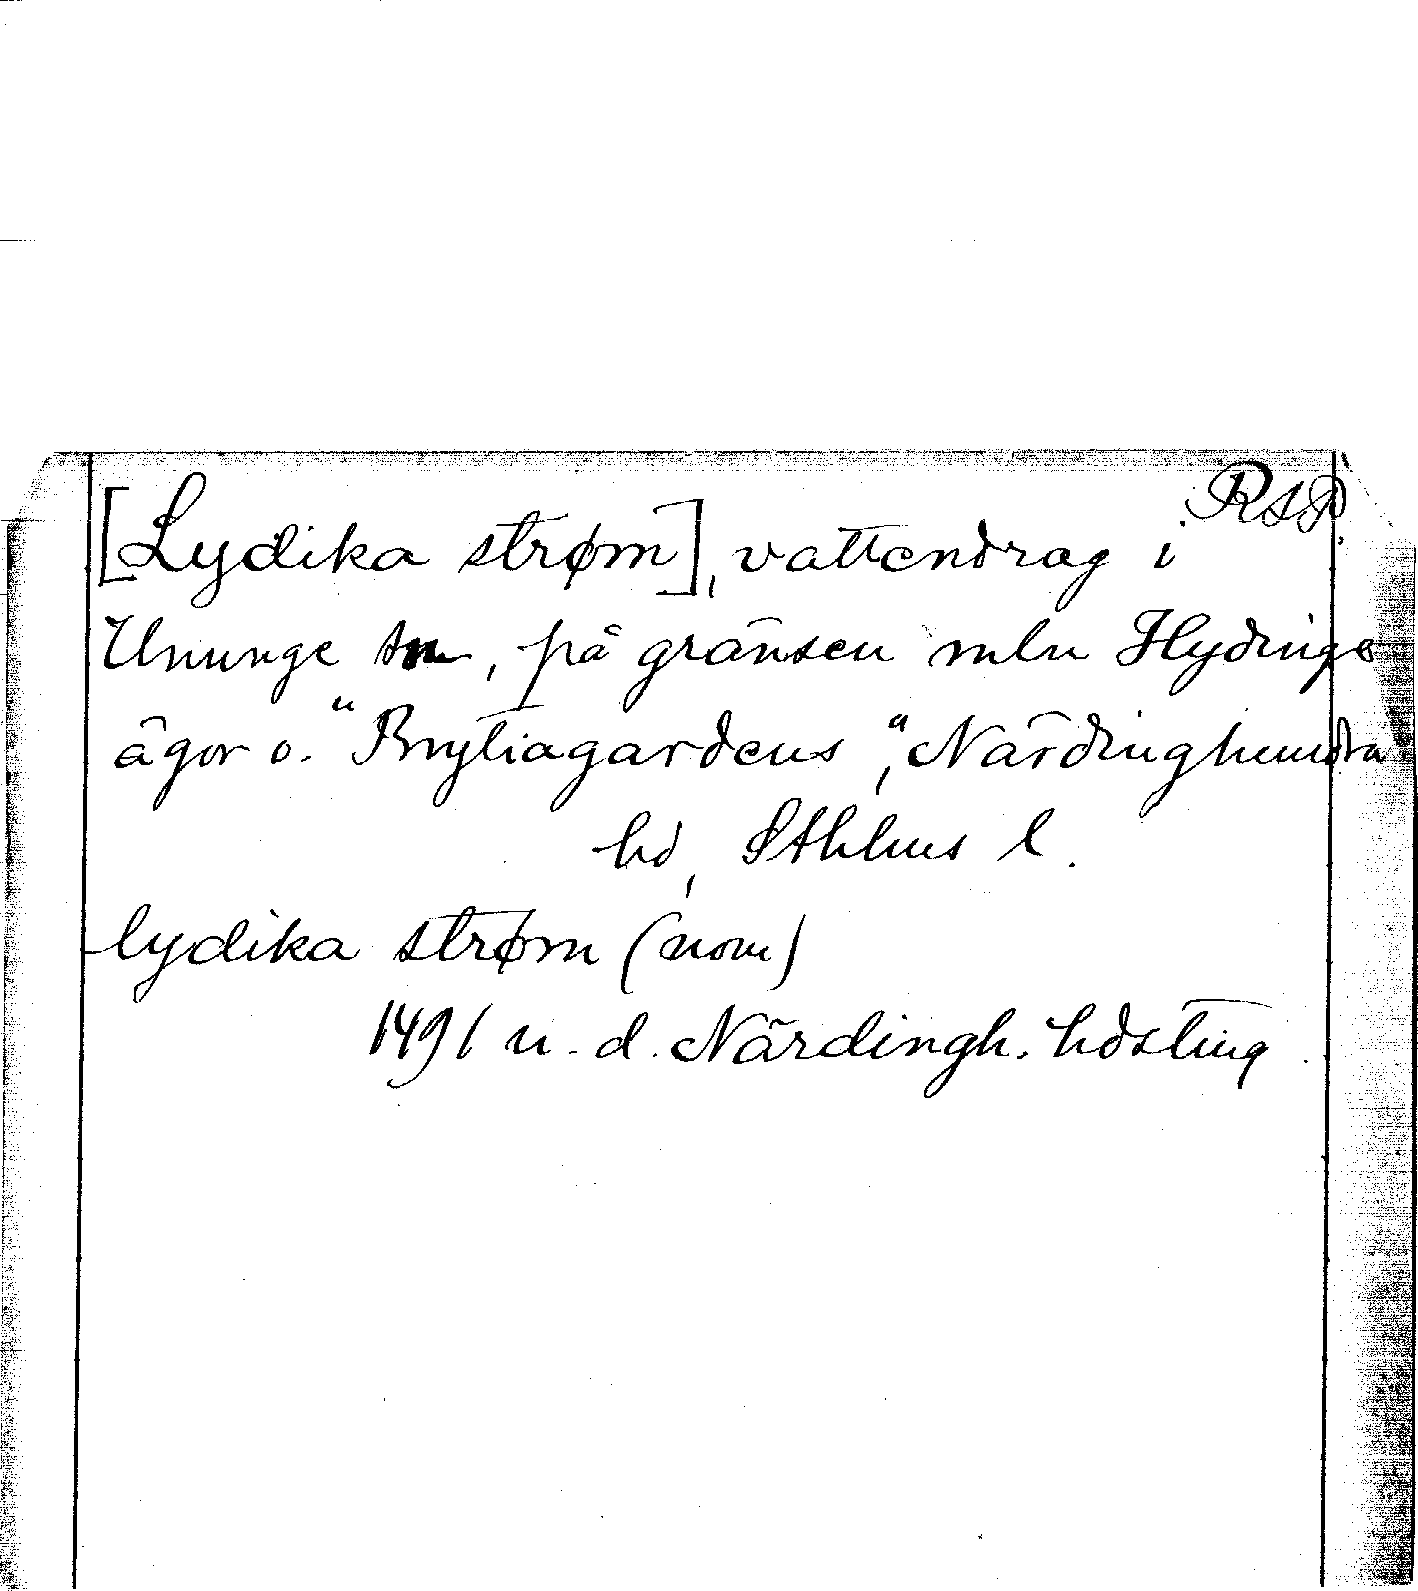 RAP.
[Lydika strøm], vattendrag i
Ununge sn, på gränsen mln Hydinge
ägor o. "Brytiagardens", Närdinghundra
hd, Sthlms l.
lydika strøm (nom)
1491 u. d. Närdingh. hdsting